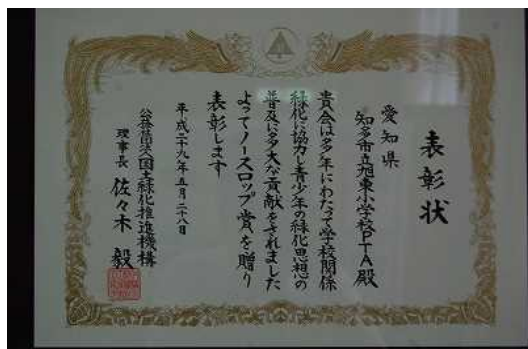 表彰状
愛知県
知多市立旭東小学校PTA殿
貴会は多年にわたって学校関係
緑化に協力し青少年の緑化思想の
普及に多大な貢献をされました
よってノースロップ賞を贈り
表彰します
平成二十九年五月二十八日
公益社団法人国土緑化推進機構
理事長 佐々木 毅